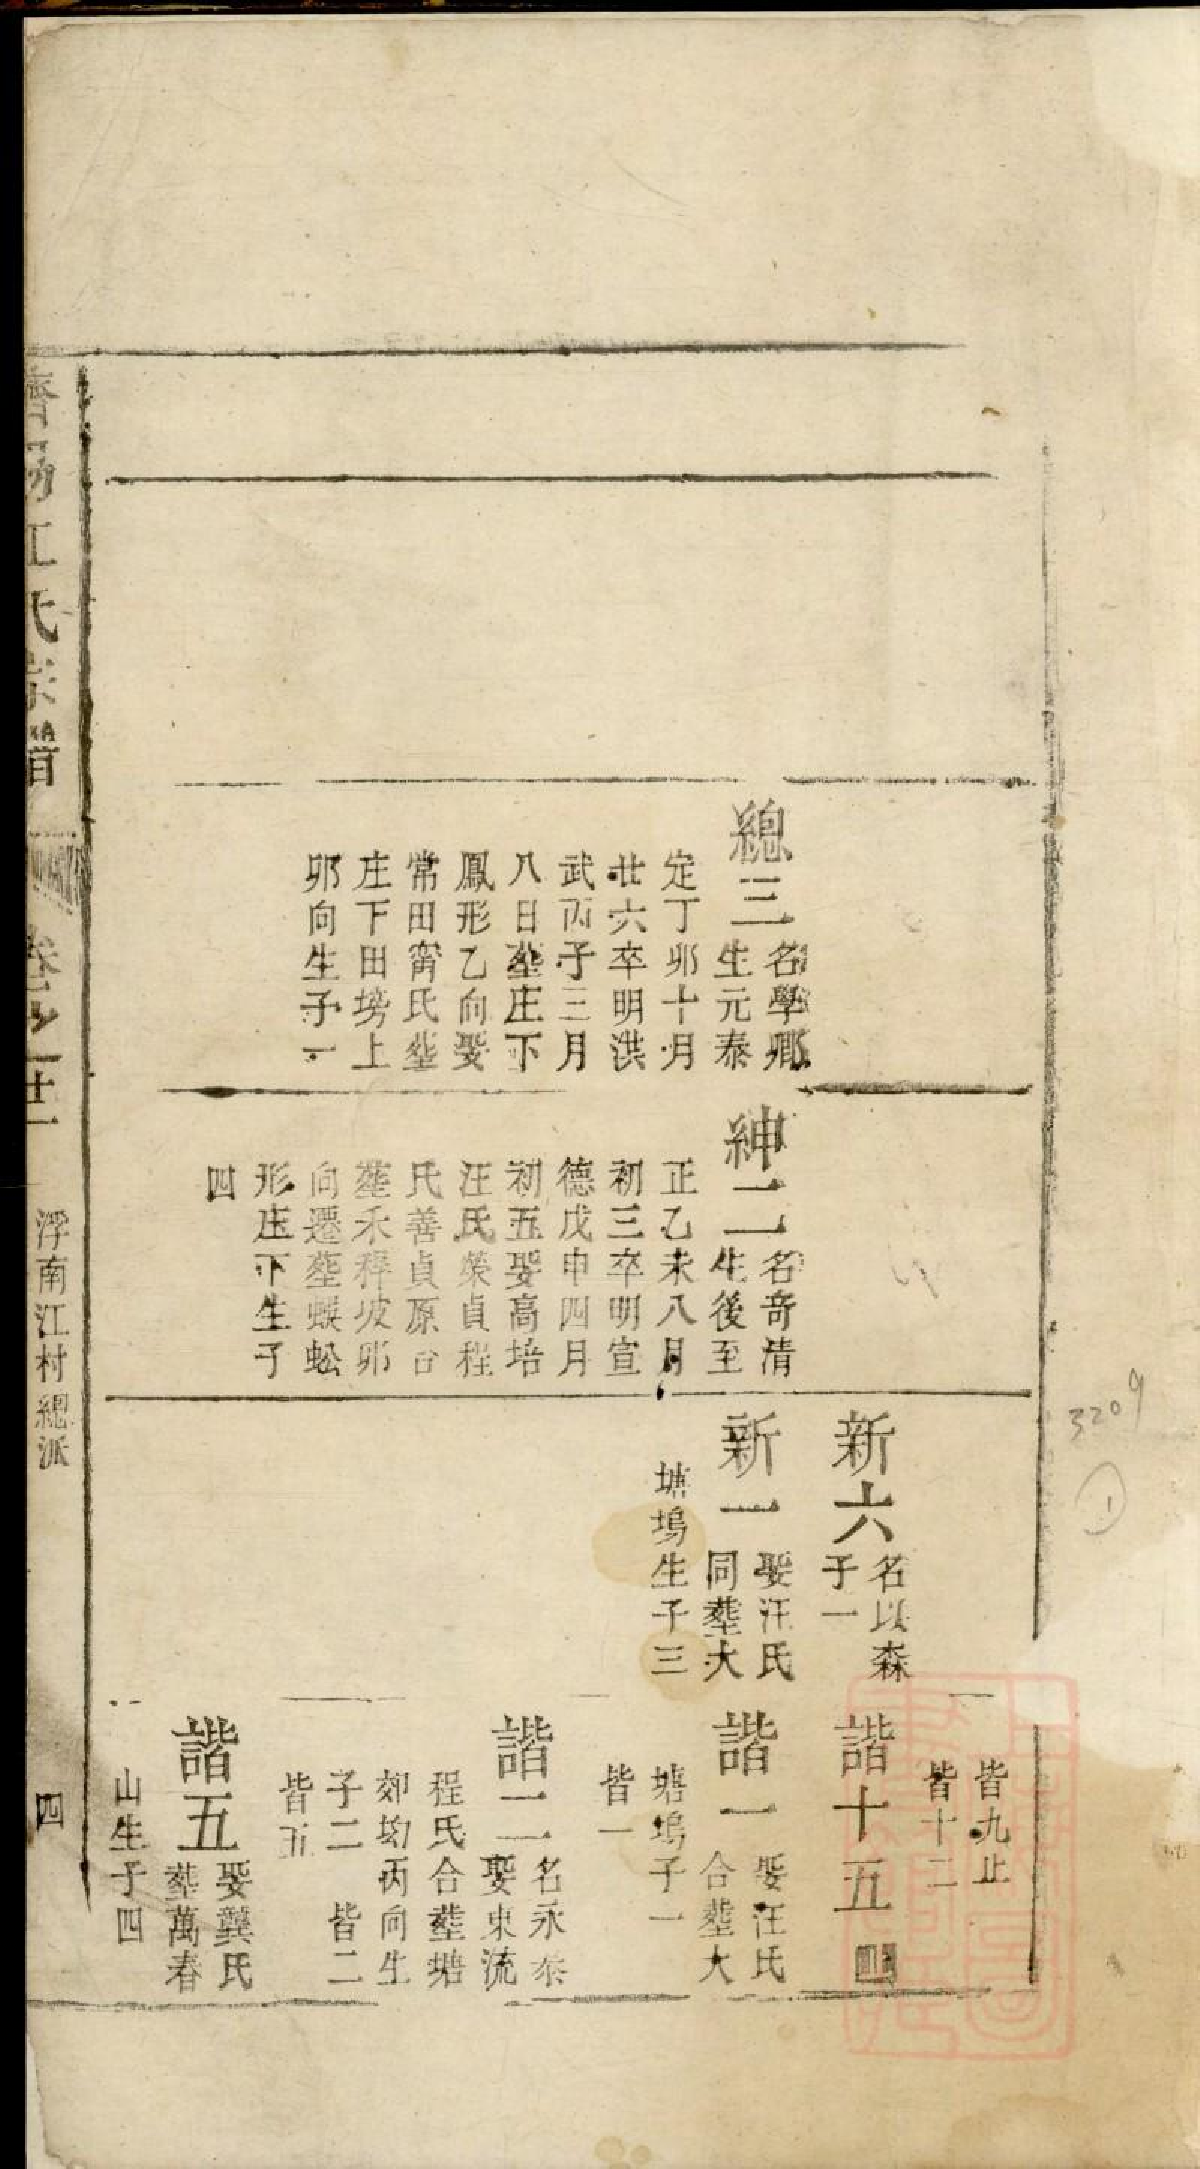 總三
名學卿
生元泰
定丁卯十月
廿六卒明洪
武丙子三月
八日塟庄下
鳳形乙向娶
常田甯氏塟
庄下田塝上
卯向生子一
紳二
名奇清
生後至
正乙未八月
初三卒明宣
德戊申四月
初五娶高培
汪氏榮貞程
氏善貞原合
塟禾稈坡卯
向遷塟蜈蚣
形庄下生子
四
新六
名以森
子一
新一
娶汪氏
同塟大
塘塢生子三
皆九止
皆十二
諧十五
止
諧一
娶汪氏
合塟大
塘塢子一
皆一
諧二
名永泰
娶東流
程氏合塟塘
郊坳丙向生
子二 皆二
皆五
諧五
娶龔氏
塟萬春
山生子四
濟陽江氏宗譜
卷之廿一
浮南江村總派
四
3209
1